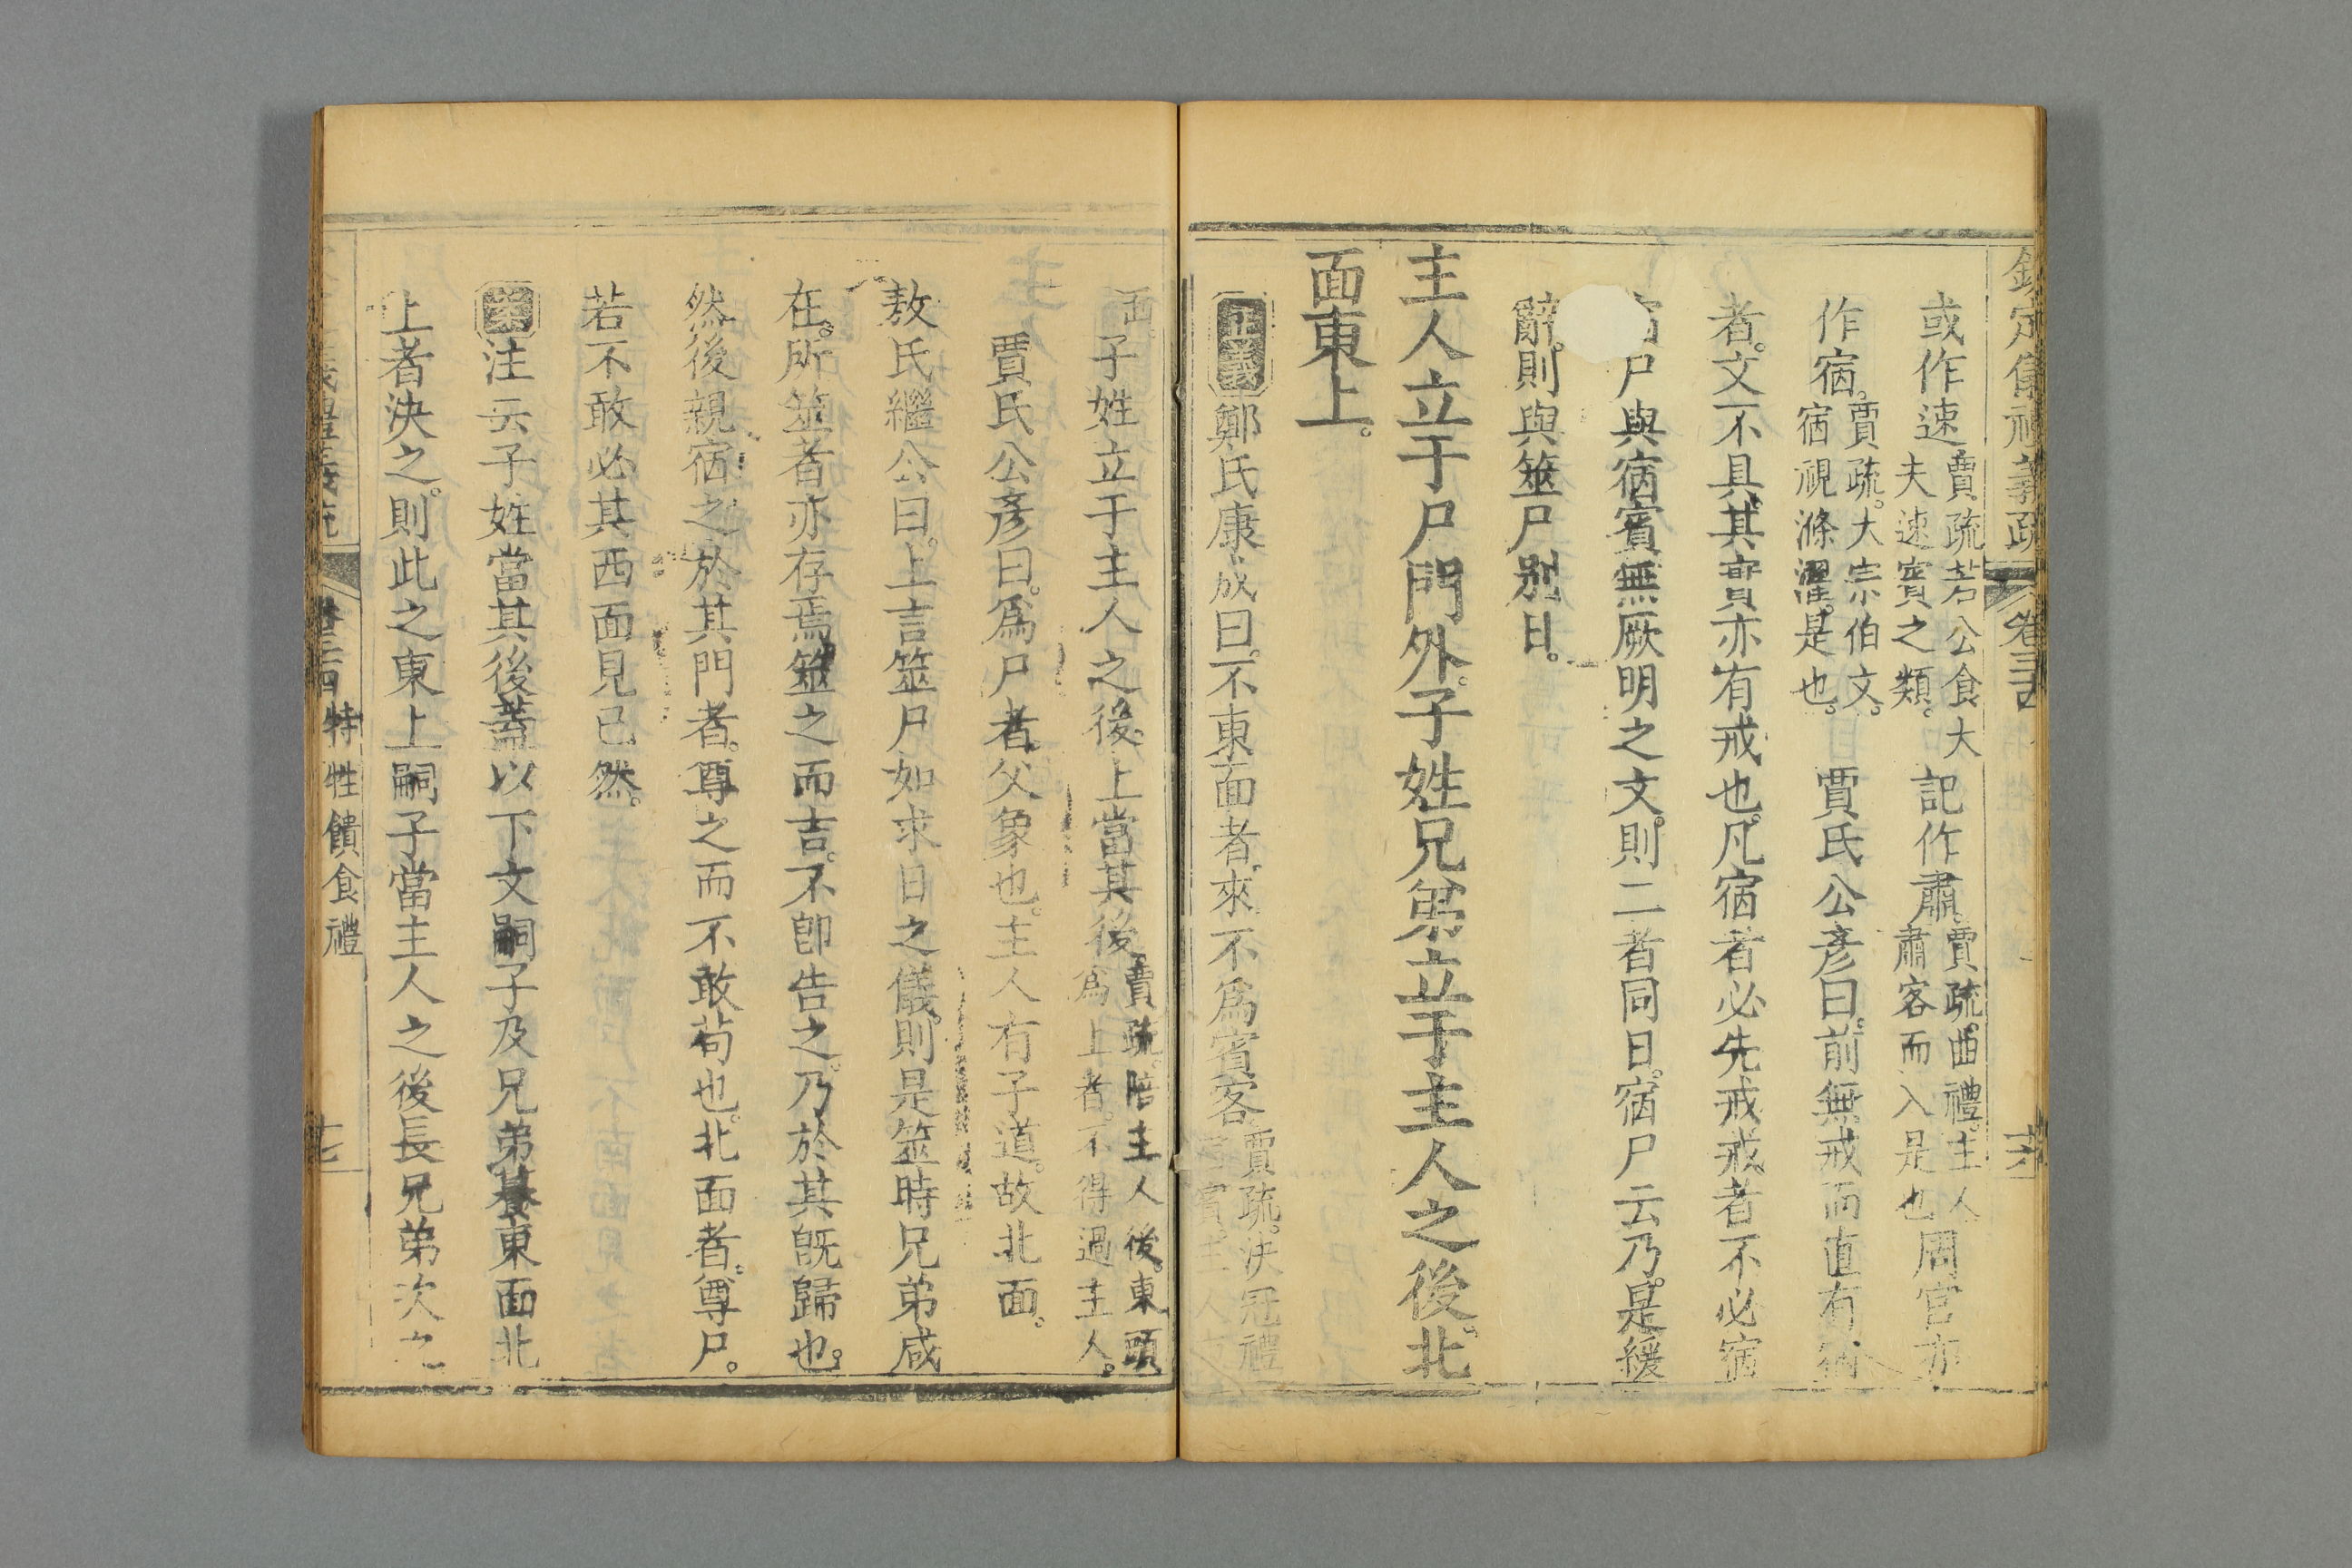 定儀禮義疏 卷三十四 十六
或作速賈疏若公食大夫速賓之類。記作肅賈疏。曲禮。主人肅客而入是也周官亦
作宿。賈疏。大宗伯文。宿視滌濯。是也。賈氏公彥曰。前無戒而直有宿
者。文不具。其實亦有戒也。凡宿者必先戒。戒者不必宿
尸與宿賓無厥明之文。則二者同日。宿尸云乃。是緩
辭。則與筮尸別日。
主人立于尸門外。子姓兄弟立于主人之後。北
面東上。
正義鄭氏康成曰。不東面者。來不爲賓客賈疏。決冠禮賓。主人
面。子姓立于主人之後。上當其後賈疏。陪主人後。東頭爲上者。不得過主人。
賈氏公彥曰。爲尸者。父象也。主人有子道。故北面。
敖氏繼公曰。上言筮尸如求日之儀。則是筮時兄弟咸
在。所筮者亦存焉。筮之而吉。不卽告之。乃於其旣歸也。
然後親宿之於其門者。尊之而不敢苟也。北面者。尊尸。
若不敢必其西面見己然。
案注云子姓當其後。蓋以下文嗣子及兄弟䭆東面北
上者決之。則此之東上嗣子當主人之後長兄弟次之
儀禮義疏 卷三十四 特牲饋食禮 十七